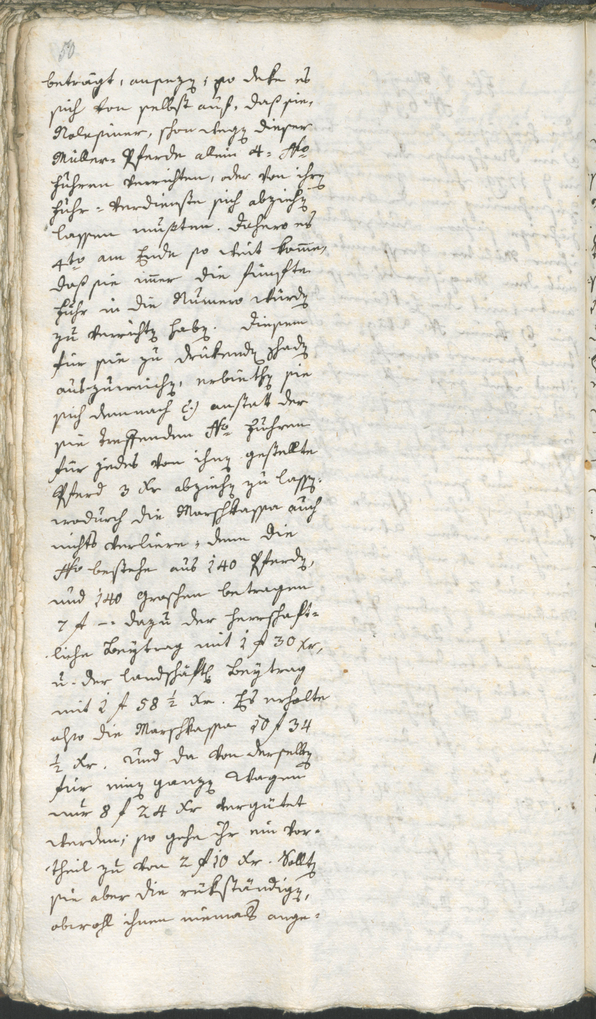 50
beträgt, ansezen; so deke es
sich von selbst auf, daß sie,
schon wegen dieser
Müller Pferde allein 4
führen verrichten, oder von ihren
Fuhr-Verdienste sich abziehen
lassen müßten. Dahero es
4to am Ende so weit komen,
daß sie imer die fünfte
Fuhr in die Numero würden
zu verrichten haben. Diesem
für sie zu drükenden schaden
auszuweichen, erbiethen sie
sich demnach anstatt der
sie treffenden Fuhren
für jedes von ihnen gestellte
Pferd 3 Xr abziehen zu lassen.
wodurch die Marschkassa auch
nichts verliere, denn die
bestehe aus 140 Pferden,
und 140 Groschen betragen
7 f —. dazu der herrschaft-
liche Beytrag mit 1 f 30 Xr,
u. der landschäftl. Beytrag
mit 2 f 58 ½ Xr. Es erhalte
also die Marschkassa 10 f 34
½ Xr. Und da von derselben
für einen ganzen Wagen
nur 8 f 24 Xr vergütet
werden; so gehe ihr ein Vor-
theil zu von 2 f 10 Xr. Sollten
sie aber die rükständigen,
obwohl ihnen niemals ange-